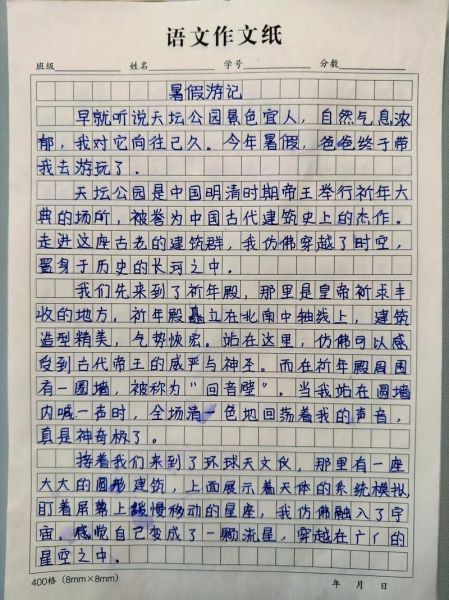 语文作文纸
班级 姓名 学号 分数
暑假游记
早就听说天坛公园景色宜人，自然气息浓
郁，我对它向往已久。今年暑假，爸爸终于带
我去游玩了。
天坛公园是中国明清时期帝王举行祈年大
典的场所，被誉为中国古代建筑史上的杰作。
走进这座古老的建筑群，我仿佛穿越了时空，
置身于历史的长河之中。
我们先来到了祈年殿，那里是皇帝祈求丰
收的地方，祈年殿矗立在北南中轴线上，建筑
造型精美，气势恢宏。站在这里，仿佛可以感
受到古代帝王的威严与神圣。而在祈年殿周围
有一圆墙，被称为“回音壁”。当我站在圆墙
内喊一声时，全场清一色地回荡着我的声音，
真是神奇极了。
接着我们来到了环球天文仪，那里有一座
大大的圆形建筑，上面展示着天体的系统模拟
盯着屏幕上缓慢移动的星座，我仿佛融入了宇
宙。感觉自己变成了一颗流星，穿越在广的
星空之中。
400格（8mm×8mm） 年 月 日